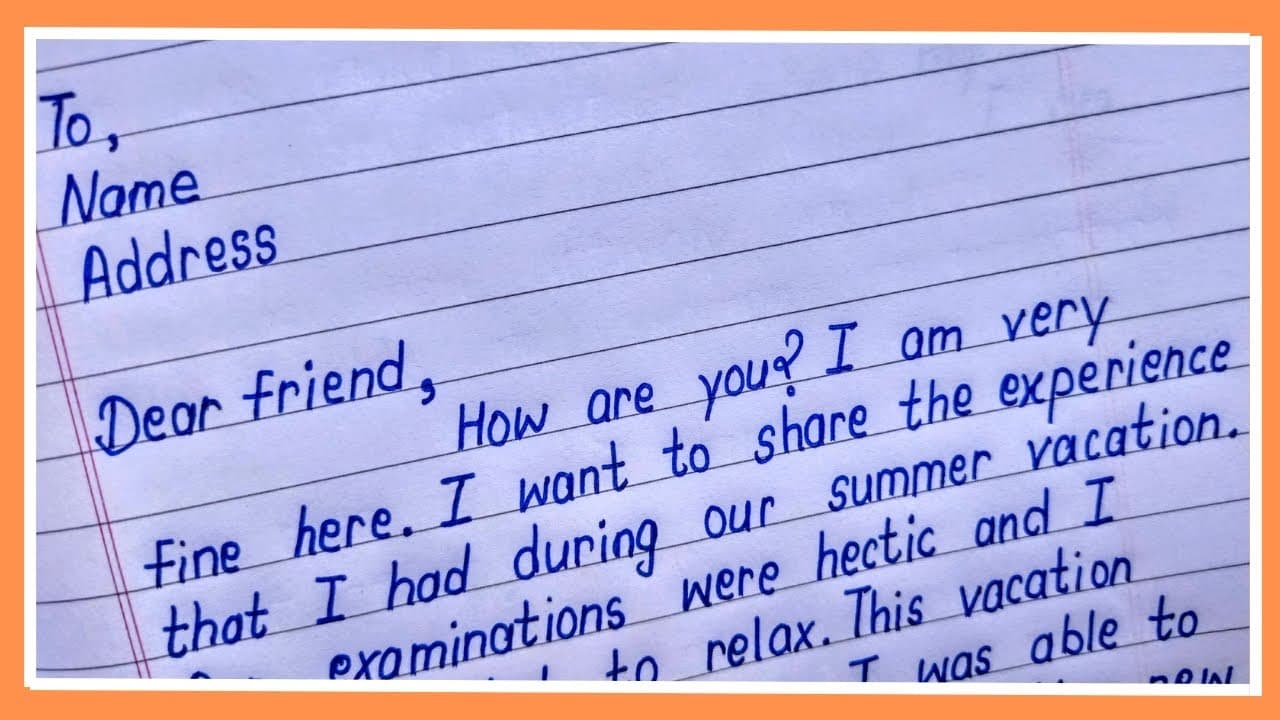 To,
Name
Address
Dear friend,
How are you? I am very
fine here. I want to share the experience
that I had during our summer vacation.
examinations were hectic and I
to relax. This vacation
I was able to
new